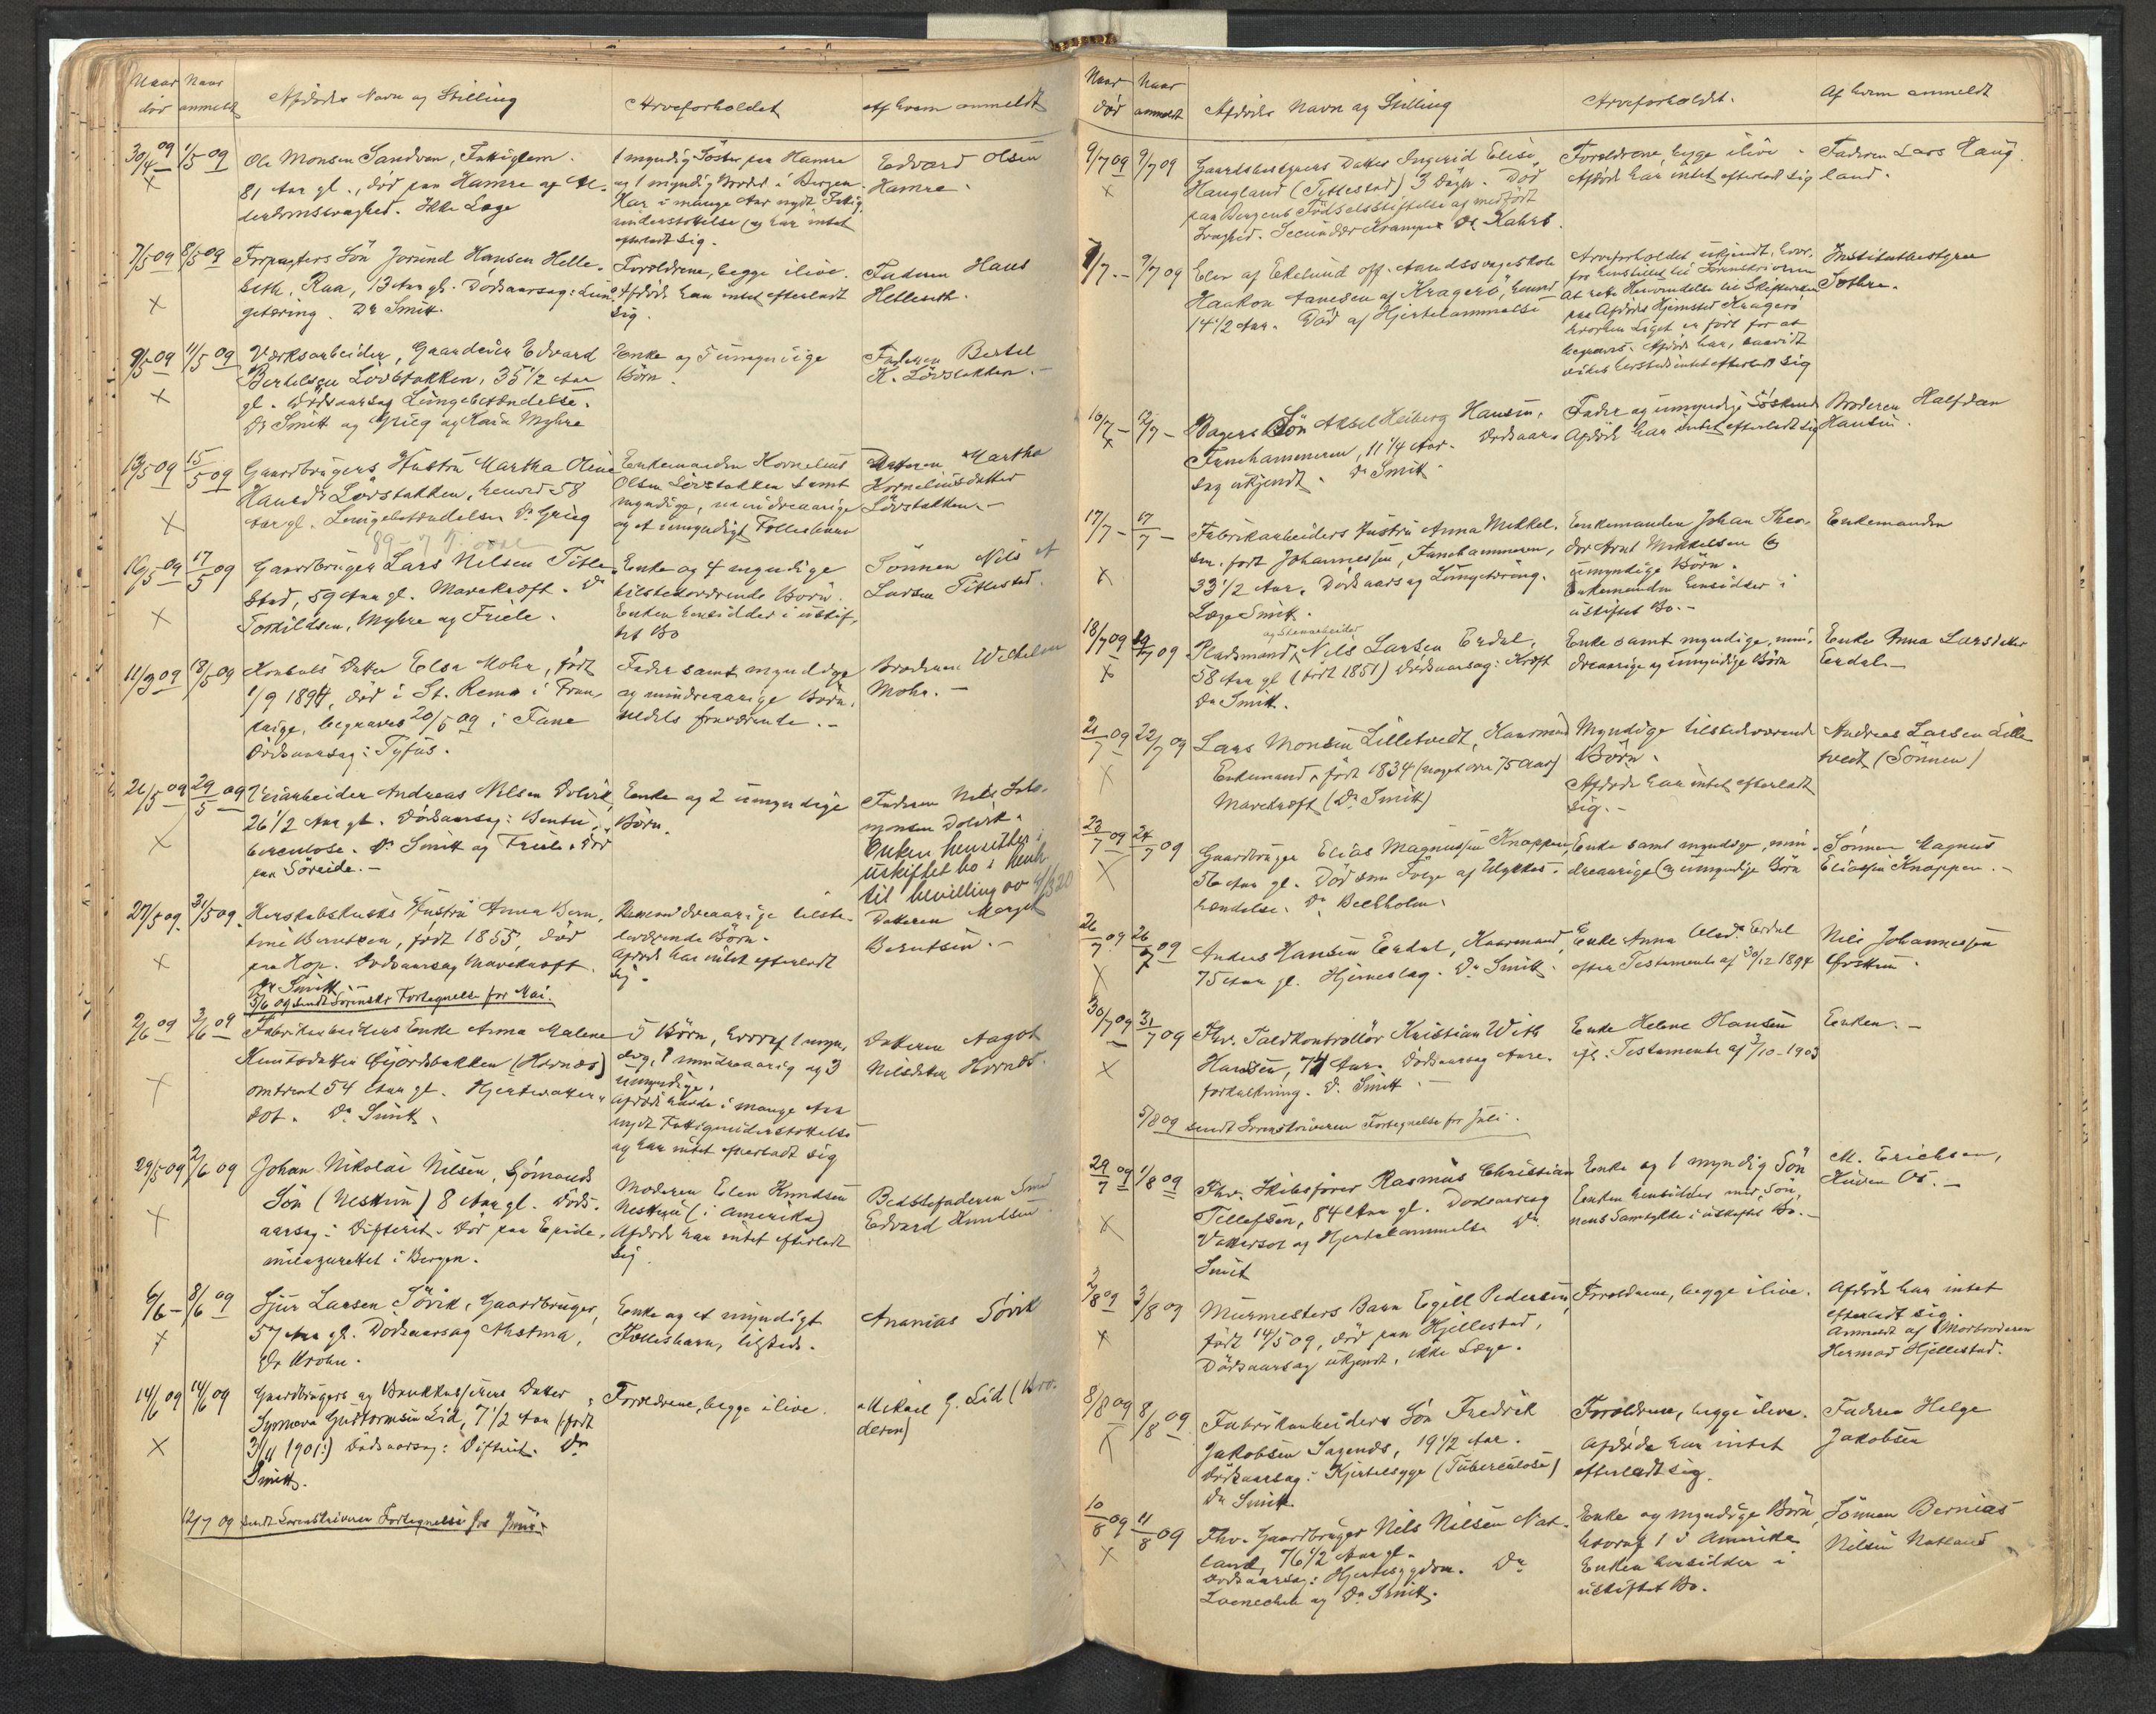 Naar Naar
død anmeldt Afdødes Navn og Stilling Arveforholdet Af hvem anmeldt
30/4 09 1/5 09 Ole Monsen Sandven, Fattiglem.
81 Aar gl., død paa Hamre af Al-
derdomssvaghed. Ikke Læge
1 myndig Søster paa Hamre
og 1 myndig Broder i Bergen.
Har i mange Aar nydt Fattig-
understøttelse og har intet
efterladt sig.
Edvard Olsen
Hamre.
X
7/5 09 8/5 09 Forpagters Søn Jorund Hansen Helle-
seth, Raa, 13 Aar gl. Dødsaarsag: Lun-
getæring. Dr Smitt.
Forældrene, begge ilive.
Afdøde har intet efterladt
sig.
Faderen Hans
Helleseth.
X
9/5 09 11/5 09 Værksarbeider, Gaardeier Edvard
Bertelsen Løvstakken, 35 1/2 Aar
gl. Dødsaarsag Lungebetændelse.
Dr Smitt og Grieg og Kaia Myhre
Enke og 5 umyndige
Børn.
Faderen Bertel
K. Løvstakken.-
X
13/5 09 15/5 09 Gaardbrugers Hustru Martha Oline
Hansdr Løvstakken, henved 58
Aar gl. Lungebetændelse. Dr Grieg
Enkemanden Kornelius
Olsen Løvstakken samt
myndige, mindreaarige
og et umyndigt Fællesbarn
Datteren Martha
Korneliusdatter
Løvstakken.-
X
16/5 09 17/5 09 Gaardbruger Lars Nilsen Title-
stad, 59 Aar gl. Mavekræft. Dr
Torkildsen, Myhre og Friele.
Enke og 4 myndige
tilstedeværende Børn.
Enken hensidder i uskif-
tet Bo
Sønnen Nils
Larsen Titlestad.
X
11/3 09 18/5 09 Konsuls Datter Elsa Mohr, født
1/9 1894, død i St. Remo i Fran-
krige, begraves 20/5 09 i Fane
Dødsaarsag: Tyfus.
Fader samt myndige
og mindreaarige Børn,
Broderen Wilhelm
Mohr.-
26/5 09 29/5 09 Veiarbeider Andreas Nilsen Dolvik
26 1/2 Aar gl. Dødsaarsag:
berculose. Dr Smitt og Friele. Død
paa Søreide.-
Enke og 2 umyndige
Børn.
Faderen Nils
Dolvik.
Enken hensitter i
uskiftet bo i henh.
til bevilling av 4/3 20
X
27/5 09. 31/5 09. Herskabskusks Hustru Anna Bern-
tine Berntsen, født 1855, død
paa Hop. Dødsaarsag Mavekræft.
Dr Smitt.-
mindreaarige tilste-
deværende Børn.
Afdøde har intet efterladt
sig.
Datteren
Berntsen.-
X
3/6 09 sendt Sorenskr. Fortegnelse for Mai.
2/6 09 3/6 09 Fabrikarbeiders Enke Anna Malene
Knutsdatter (Hornæs)
omtrent 54 Aar gl. Hjertevatter-
sot. Dr Smitt.
5 Børn, hvoraf 1 myn-
dig, 1 mindreaarig og 3
umyndige.
Afdøde havde i mange Aar
nydt Fattigunderstøttelse
og har intet efterladt sig
Datteren Aagot
Nilsdatter Hornæs.
X
29/5 09 2/6 09 Johan Nikolai Nilsen, Sjømands
Søn (Nesttun) 8 Aar gl. Døds-
aarsag: Difterit. Død paa Epide-
milazarettet i Bergen.
Moderen Elen Knudsen
Nesttun (i Amerika)
Afdøde har intet efterladt
sig
Bedstefaderen Smed
Edvard Knudsen.
X
6/6 - 8/6 09 Sjur Larsen Søvik, Gaardbruger,
57 Aar gl. Dødsaarsag Astma.
Dr Krohn.
Enke og et myndigt
Fællesbarn, tilstede.
Ananias Søvik
X
14/6 09 14/6 09 Gaardbrugers og Bankkasserers Datter
Synneva Guttormsen Lid, 7 1/2 Aar (født
3/11 1901.) Dødsaarsag: Difterit. Dr
Smitt.
Forældrene, begge ilive.
Mikael G. Lid (Bro-
deren)
X
12/7 09 sendt Sorenskriveren Fortegnelse for Juni.
Naar Naar
død anmeldt Afdødes Navn og Stilling Arveforholdet. Af hvem anmeldt
9/7 09 9/7 09 Gaardsbestyrers Datter Ingerid Elise
Haugland (Titlestad) 3 Dage. Død
paa Bergens Fødselsstiftelse af medfødt
Svaghed. Krampe. Dr Kahrs.
Forældrene, begge ilive.
Afdøde har intet efterladt sig
Faderen Lars Haug-
land.
X
7/7.- 9/7 09 Elev af Ekelund off. Aandssvageskole
Haakon Aanesen af Kragerø, henved
14 1/2 Aar. Død af Hjertelammelse
Arveforholdet ukjendt, hvor-
for henstilles til Sorenskriveren
at rette Henvendelse til Skifteretten
paa Afdødes Hjemsted Kragerø
hvorhen Liget er ført for at
begraves. Afdøde har, saavidt
vides hersteds intet efterladt sig
Institutbestyrer
Sæthre.
10/7 - 12/7 - Bagers Søn Aksel Heiberg Hansen,
Fanehammeren, 11 1/4 Aar. Dødsaar-
sag ukjendt. Dr Smitt.
Fader og umyndige Søskende
Afdøde har intet efterladt sig
Broderen Halfdan
Hansen.
X
17/7 - 17/7 - Fabrikarbeiders Hustru Anna Mikkel-
sen, født Johannessen, Fanehammeren,
33 1/2 Aar. Dødsaarsag Lungetæring.
Læge Smitt.
Enkemanden Johan Theo-
dor Arnt Mikkelsen og
umyndige Børn.
Enkemanden hensidder i
uskiftet Bo.-
Enkemanden
X
18/7 09 19/7 09 og Stenarbeider
Pladsmand Nils Larsen Erdal,
58 Aar gl (født 1851) Dødsaarsag: Kræft
Dr Smitt.
Enke samt myndige, min-
dreaarige og umyndige Børn
Enke Anna Larsdatter
Erdal.-
X
21/7 09 22/7 09 Lars Monsen Lilletvedt, Kaarmand
Enkemand, født 1834 (noget over 75 Aar)
Mavekræft (Dr Smitt)
Myndige tilstedeværende
Børn.
Afdøde har intet efterladt
sig.-
Andreas Larsen Lille
tvedt (Sønnen)
X
23/7 09 24/7 09 Gaardbruger Elias Magnussen Knappen,
56 Aar gl. Død som Følge af Ulykkes-
hændelse. Dr Bechholm.
Enke samt myndige, min-
dreaarige og umyndige Børn
Sønnen Magnus
Eliassen Knappen.-
X
26/7 09 26/7 09 Anders Hansen Erdal, Kaarmand,
75 Aar gl. Hjerneslag. Dr Smitt.
Enke Anna Olsdr Erdal
efter Testamente af 30/12 1894
Nils Johannessen
X
30/7 09 31/7 09 Fhv. Toldkontrollør Kristian With
Hansen, 74 Aar. Dødsaarsag Aare-
forkalkning. Dr. Smitt.-
Enke Helene Hansen
ifl. Testamente af 3/10-1903
Enken.-
X
5/8 09 sendt Sorenskriveren Fortegnelse for Juli.
29/7 09 1/8 09 Fhv. Skibsfører Rasmus Christian
Tellefsen, 84 Aar gl. Dødsaarsag
Vattersot og Hjertelammelse Dr
Smitt
Enke og 1 myndig Søn
Enken hensidder med Søn-
nens Samtykke i uskiftet Bo.-
M. Erichsen,
Os.-
X
2/8 09 3/8 09 Murmesters Barn Egill Pedersen,
født 14/5 09, død paa Hjellestad,
Dødsaarsag ukjendt, ikke Læge.
Forældrene, begge ilive.
Afdøde har intet
efterladt sig.
Anmeldt af Morbroderen
Hermod Hjellestad.
X
8/8 09 8/8 09 Fabrikarbeiders Søn Fredrik
Jakobsen Sagenæs, 19 1/2 Aar.
Dødsaarsag: Kjertelsyge (Tuberculose)
Dr Smitt
Forældrene, begge ilive.
Afdøde har intet
efterladt sig.
Faderen Helge
Jakobsen
X
10/8 09 11/8 09 Fhv. Gaardbruger Nils Nilsen Nat-
land, 76 1/2 Aar gl.
Dødsaarsag: Hjertesygdom. Dr
og Dr Smitt.
Enke og myndige Børn,
hvoraf 1 i Amerika
Enken hensidder i
uskiftet Bo.
Sønnen Bernias
Nilsen Natland
X